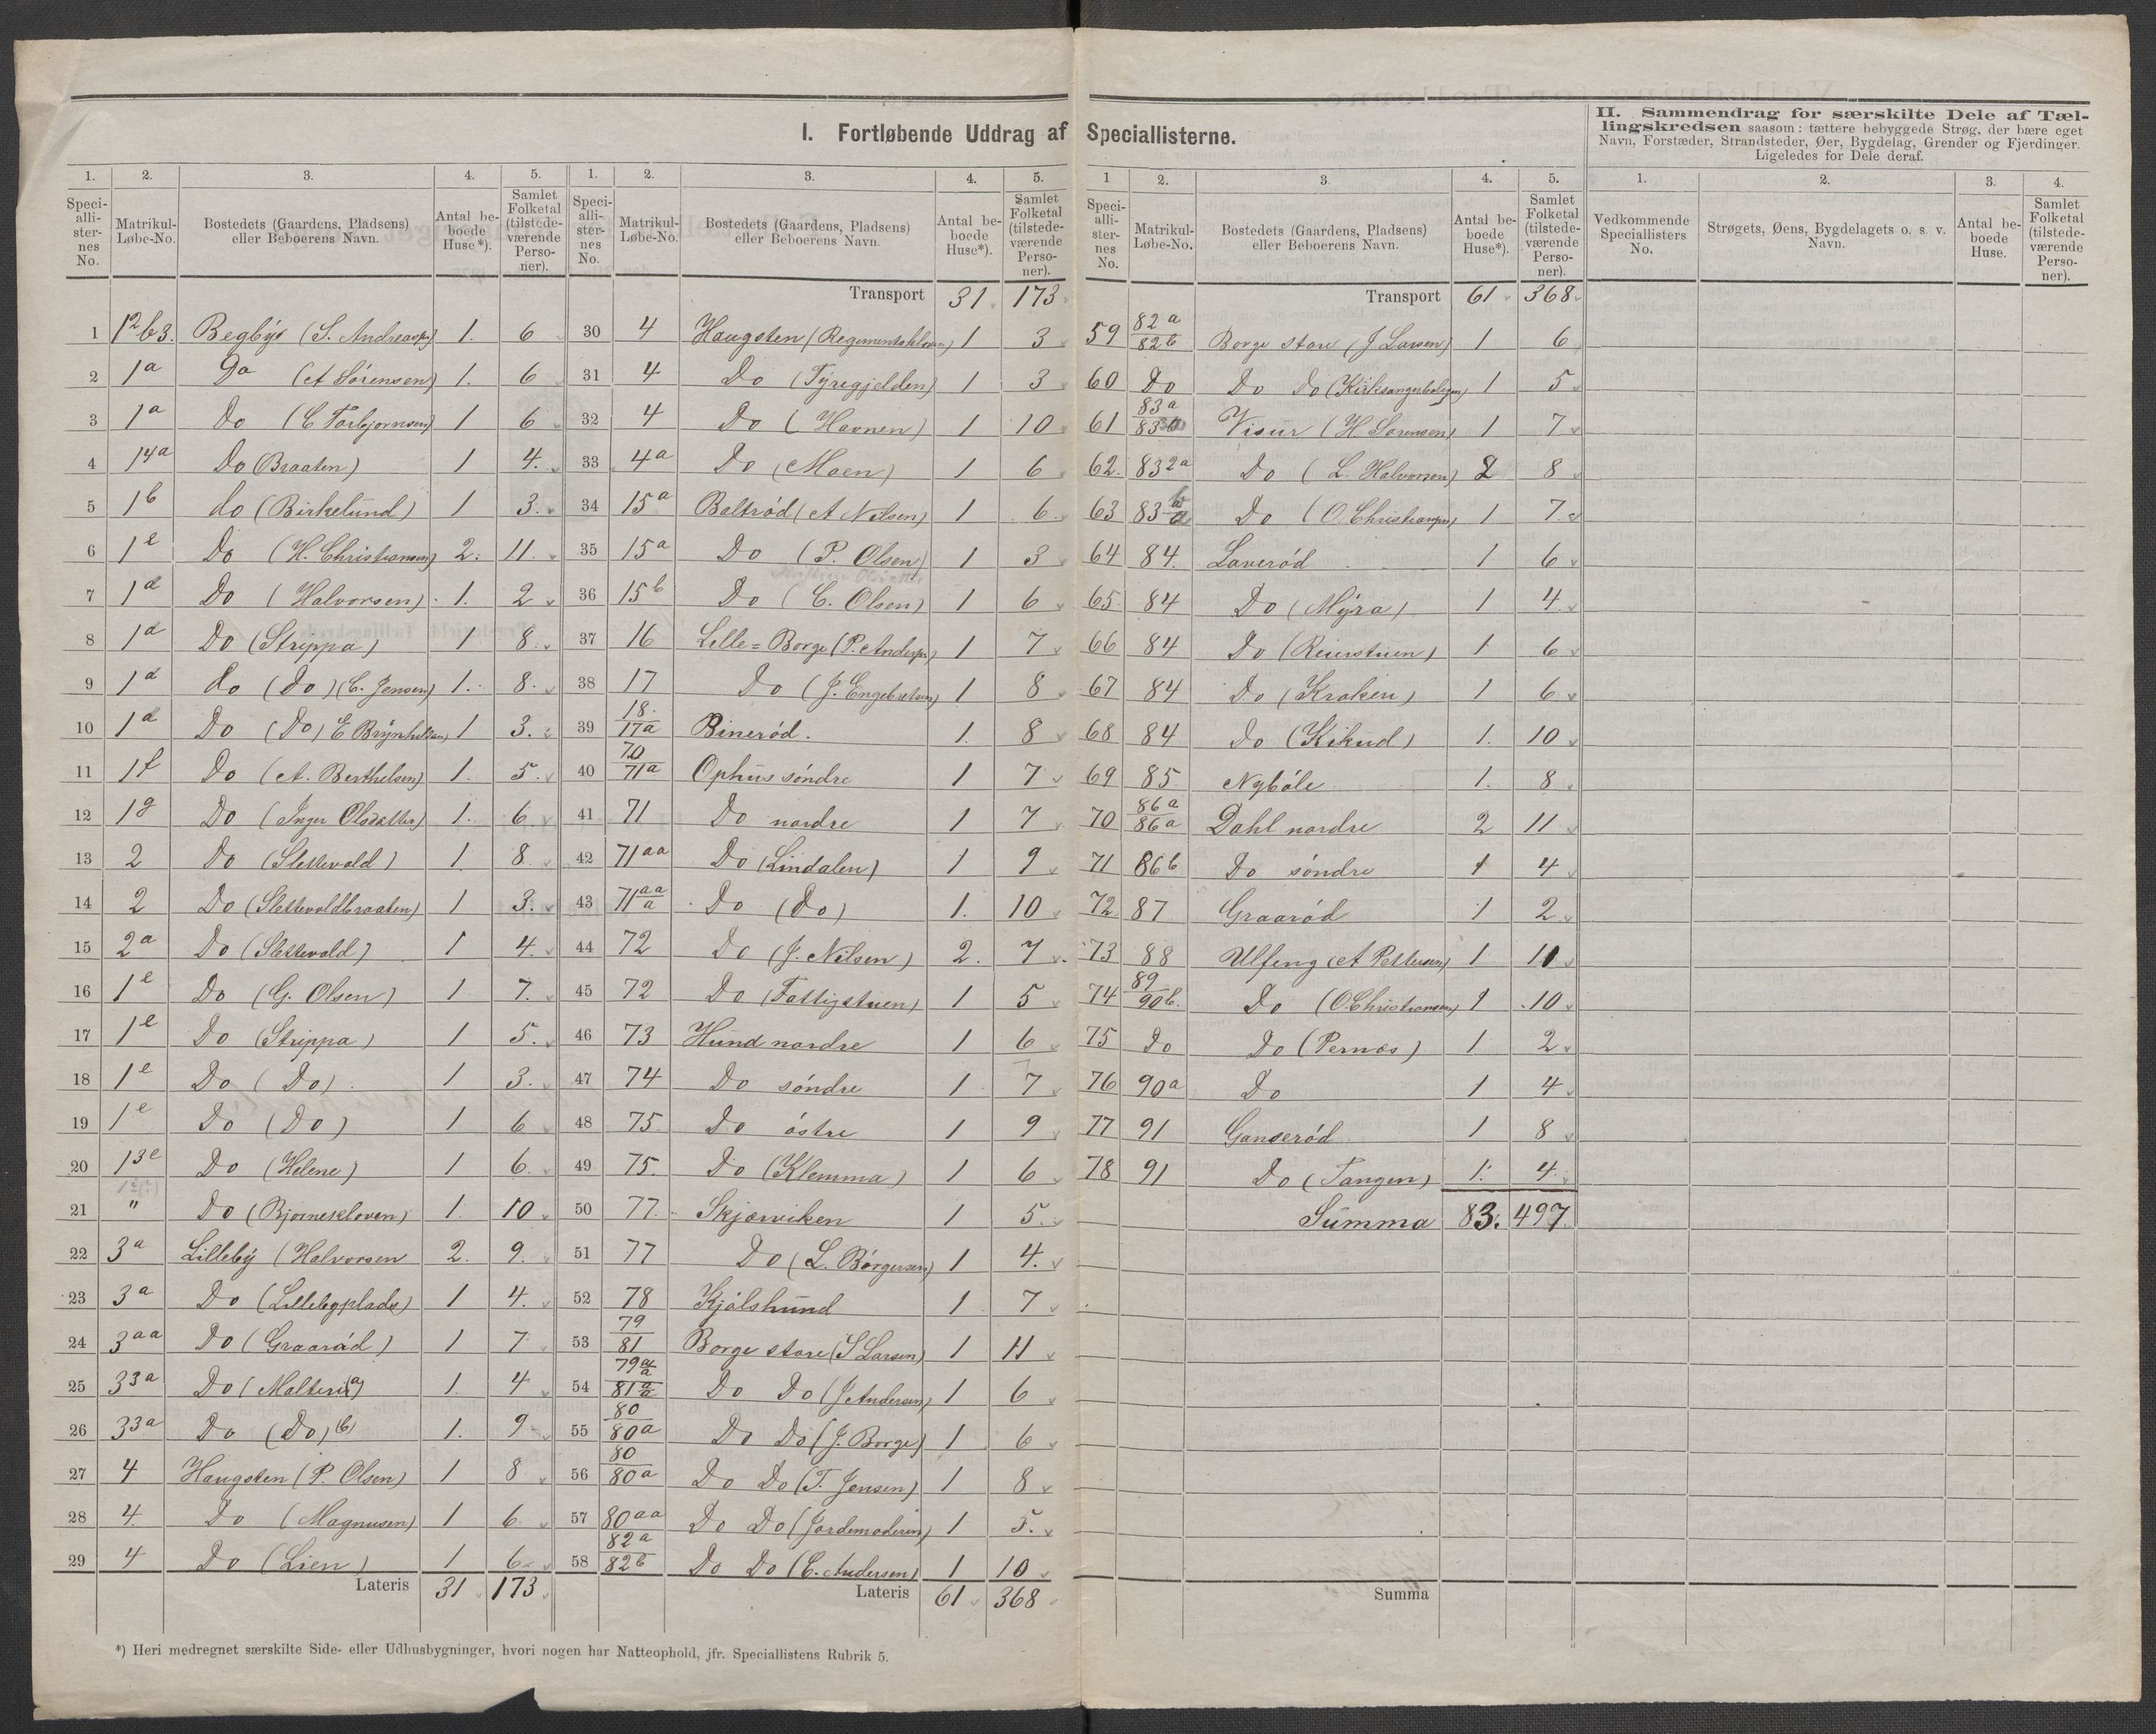 I. Fortløbende Uddrag af Speciallisterne.
II. Sammendrag for særskilte Dele af Tællingskredsen saasom: tættere bebyggede Strøg, der bære eget
Navn, Forstæder, Strandsteder, Øer, Bygdelag, Grender og Fjerdinger.
Ligeledes for Dele deraf.
1. 2. 3. 4. 5.
Speciallisternes No. Matrikul-Løbe-No. Bostedets (Gaardens, Pladsens) eller Beboerens Navn. Antal beboede Huse*). Samlet Folketal (tilstedeværende Personer).
1 12b3. Begbÿ (S. Andreasen) 1. 6
2 1a Do (A Sörensen) 1. 6
3 1a Do (C Torbjornsen) 1 6
4 14a Do (Braaten) 1 4.
5 1b do (Birkelund) 1 3.
6 1e Do (H. Christiansen) 2. 11.
7 1d Do (Halvorsen) 1. 2
8 1d Do (Strippa) 1 8.
9 1d do (do) (C. Jensen) 1. 8.
10 1d Do (Do) E Brÿnhildsen) 1 3.
11 1f Do (A. Berthelsen) 1. 5.
12 1g Do (Inger Olsdatter) 1. 6
13 2 Do (Slettevold) 1. 8.
14 2 Do (Slettevoldbraaten) 1 3.
15 2a Do (Slettevold) 1 4.
16 1e Do (G. Olsen) 1 7.
17 1e Do (Strippa) 1 5.
18 1e Do (Do) 1 3.
19 1e Do (Do) 1 6
20 13e Do (Helene) 1 6.
21 " Do (Bjorneskloven) 1. 10
22 3a Lillebÿ (Halvorsen 2. 9.
23 3a Do (Lillebyplads) 1 4.
24 3aa Do (Graaröd) 1 7
25 33a Do (Malteri(a) 1. 4
26 33a Do (Do) (b) 1. 9
27 4 Haugsten (P. Olsen) 1 8
28 4. Do (Magnusen) 1 6
29 4 Do (Lien) 1 6
Lateris 31 173
1. 2. 3. 4. 5.
Speciallisternes No. Matrikul-Løbe-No. Bostedets (Gaardens, Pladsens) eller Beboerens Navn. Antal beboede Huse*). Samlet Folketal (tilstedeværende Personer).
Transport 31 173
30 4 Haugsten 1 3
31 4 Do (Tÿregjelden) 1 3
32 4 Do (Havnen) 1 10
33 4a Do (Moen) 1 6
34 15a Baltröd (A Nilsen) 1 6
35 15a Do (P. Olsen) 1 3
36 15b Do (C. Olsen) 1 6
37 16 Lille=Borge (P. Andersen) 1 7
38 17 Do (J. Engebretsen) 1 8
39 18/17a Bineröd. 1. 8
40 70/71a Ophus söndre 1 7
41 71 Do nordre 1 7
42 71aa Do (Lindalen) 1 9
43 71aa/a Do (do) 1. 10
44 72 Do (J. Nilsen) 2. 7
45 72 Do (Fattigstuen) 1 5
46 73 Hund nordre 1 6
47 74 Do söndre 1 7
48 75. Do östre 1 9
49 75. Do (Klemma) 1 6
50 77. Skjærviken 1 5.
51 77 Do (L. Börgersen) 1 4.
52 78 Kjölshund 1 7
53 79/81 Borge store (S Larsen) 1 11
54 79a/a 81a/a Do Do (J Andersen) 1 6
55 80/80a Do Do (J. Borge) 1 6
56 80/80a Do Do (T. Jensen) 1 8
57 80aa Do Do (Jordemoderen) 1 5.
58 82a/82b Do Do (C. Andersen) 1 10
Lateris 61 368
1 2. 3. 4. 5.
Speciallisternes No. Matrikul-Løbe-No. Bostedets (Gaardens, Pladsens) eller Beboerens Navn. Antal beboede Huse*). Samlet Folketal (tilstedeværende Personer).
Transport 61 368
59 82a/82b Borge store (J Larsen) 1 6
60 Do Do Do (Kirkesangerboligen) 1 5
61 83a Visur (H Sorensen) 1 7
62. 832a Do (L. Halvorsen) 2 8
63 83 Do (O. Christiansen) 1 7.
64 84. Laveröd 1 6
65 84 Do (Mÿra) 1 4
66 84 Do (Reierstuen) 1 6
67 84 Do (Kroken) 1 6
68 84 Do (Kikud) 1. 10
69 85. Nyböle 1. 8
70 86a/86a Dahl nordre 2 11
71 86b Do söndre 1 4
72. 87 Graaröd 1 2
73 88 Ulfeng (A Pettersen) 1 11
74 89/90b. Do (O. Christiansen) 1 10
75 Do Do (Pernes) 1 2
76 90a Do 1 4
77 91 Ganseröd 1 8
78 91 Do (Tangen) 1. 4
Summa 83. 497.
Summa
1. 2. 3. 4.
Vedkommende Speciallisters No. Strøgets, Øens, Bygdelagets o. s. v. Navn. Antal beboede Huse. Samlet Folketal (tilstedeværende Personer).
*) Heri medregnet særskilte Side- eller Udhusbygninger, hvori nogen har Natteophold, jfr. Speciallistens Rubrik 5.